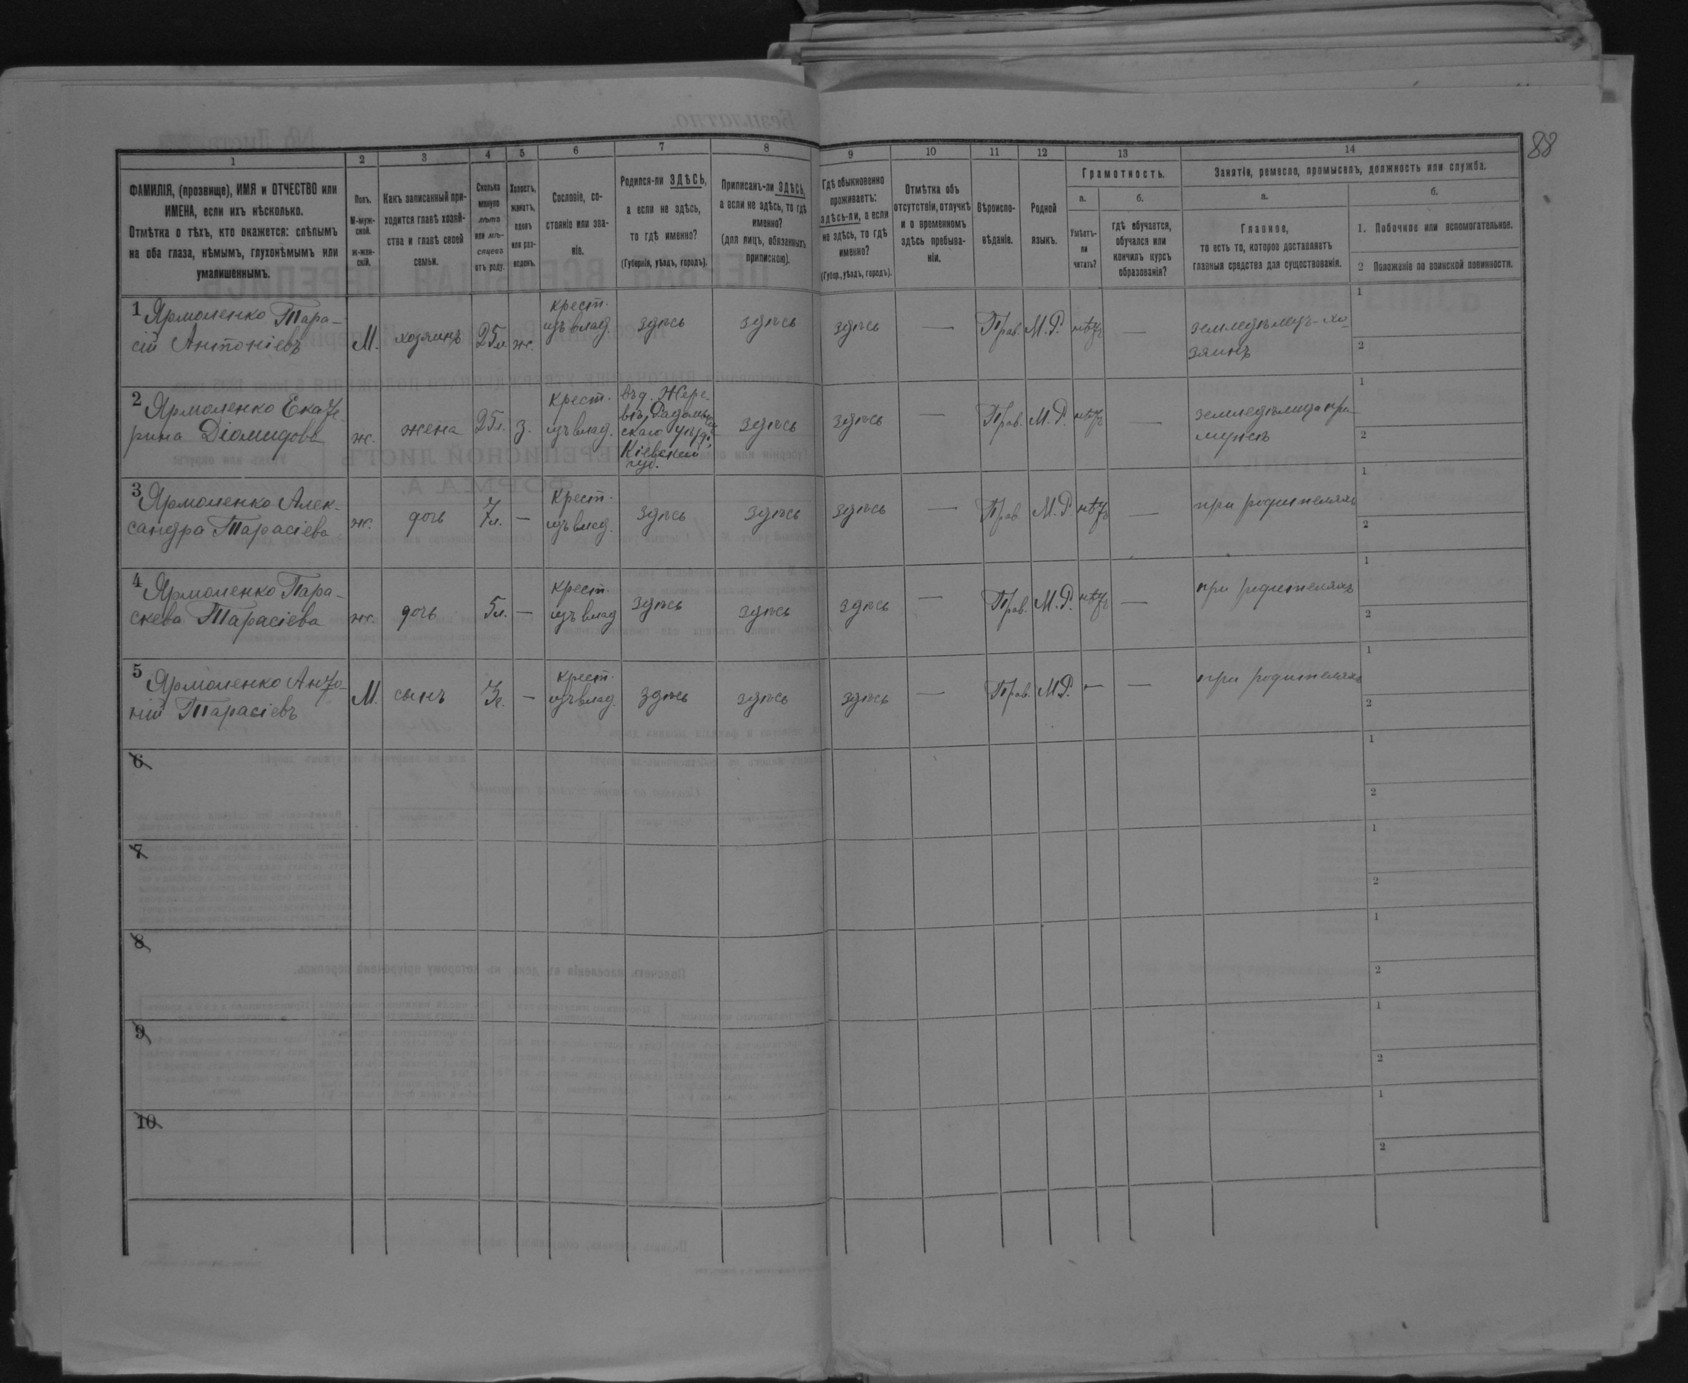 88
1 2 3 4 5 6 7 8 9 10 11 12 13 14
ФАМИЛІЯ, (прозвище), ИМЯ и ОТЧЕСТВО или
ИМЕНА, если ихъ нѣсколько.
Отмѣтка о тѣхъ, кто окажется: слѣпымъ
на оба глаза, нѣмымъ, глухонѣмымъ или
умалишеннымъ.
Полъ.
М-муж-
ской.
ж-жен-
скій.
Какъ записанный при-
ходится главѣ хозяй-
ства и главѣ своей
семьи.
Сколько
минуло
лѣтъ
или мѣ-
сяцевъ
отъ роду.
Холостъ,
женатъ,
вдовъ
или раз-
веденъ.
Сословіе, со-
стояніе или зва-
ніе.
Родился-ли ЗДѢСЬ,
а если не здѣсь,
то гдѣ именно?
(Губернія, уѣздъ, городъ).
Приписанъ-ли ЗДѢСЬ,
а если не здѣсь, то гдѣ
именно?
(для лицъ, обязанныхъ
припиской).
Гдѣ обыкновенно
проживаетъ:
здѣсь-ли, а если
не здѣсь, то гдѣ
именно?
(Губер., уѣздъ, городъ).
Отмѣтка объ
отсутствіи, отлучкѣ
и о временномъ
здѣсь пребыва-
ніи.
Вѣроиспо-
вѣданіе.
Родной
языкъ.
Грамотность.
а.
Умѣетъ-
ли
читать?
б.
гдѣ обучается,
обучался или
кончилъ курсъ
образованія?
Занятіе, ремесло, промыселъ, должность или служба.
а.
Главное,
то есть то, которое доставляетъ
главныя средства для существованія.
б.
1. Побочное или вспомогательное.
2 Положеніе по воинской повинности.
1 Ярмоленко Тара-
сій Антоніевъ
М.
хозяинъ
25л.
ж.
крест.
изъ влад.
здѣсь
здѣсь
здѣсь
—
Прав.
М.Р.
нѣтъ
—
земледѣлец-хо
зяинъ
1
2
2 Ярмоленко Екате
рина Діомидова
ж.
жена
25л.
з.
крест.
изъ влад.
Кіевской
губ.
здѣсь
здѣсь
—
Прав.
М.Р.
нѣтъ
—
земледѣлица при
мужѣ
1
2
3 Ярмоленко Алек-
сандра Тарасіева
ж.
дочь
7л.
—
крест.
изъ влад.
здѣсь
здѣсь
здѣсь
—
Прав
М.Р
нѣтъ
—
при родителяхъ
1
2
4 Ярмоленко Пара-
скева Тарасіева
ж.
дочь
5л.
—
крест.
изъ влад
здѣсь
здѣсь
здѣсь
—
Прав.
М.Р.
нѣтъ
—
при родителяхъ
1
2
5 Ярмоленко Анто-
ній Тарасіевъ
М.
сынъ
—
крест.
изъ влад.
здѣсь
здѣсь
здѣсь
—
Прав.
М.Р.
—
—
при родителяхъ
1
2
6
1
2
7
1
2
8
1
2
9
1
2
10.
1
2